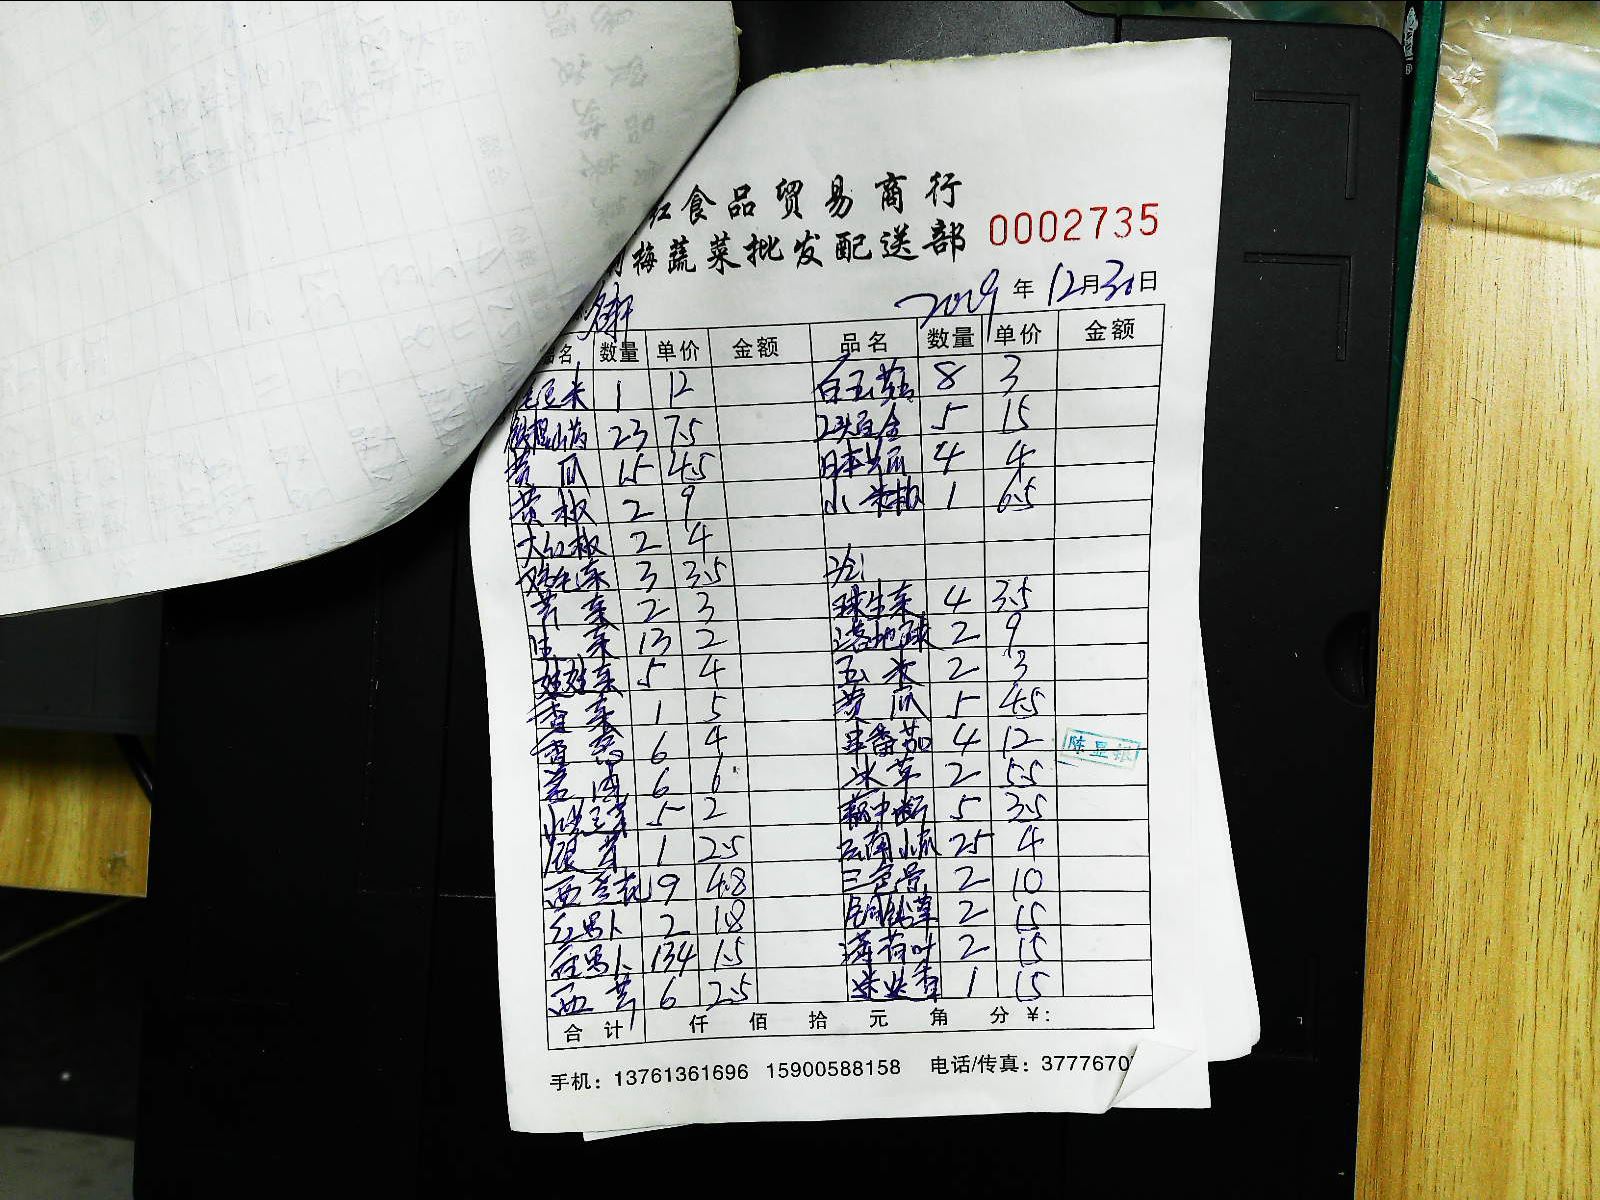 红食品贸易商行
梅蔬菜批发配送部
0002735
2019年12月30日
品名 数量 单价 金额 品名 数量 单价 金额
毛豆米 1 12 白玉菇 8 3
铁棍山药 23 7.5 5 15
黄瓜 15 4.5 日本南瓜 4 4
黄椒 2 9 小米椒 1 6.5
大红椒 2 4
鸡毛菜 3 3.5
芹菜 2 3 球生菜 4 3.5
生菜 13 2 2 9
娃娃菜 5 4 玉米 2 3
香菜 1 5 黄瓜 5 4.5
香葱 6 4 串番茄 4 12
陈显银
6 6 冰草 2 5.5
5 2 藕中断 5 3.5
银芽 1 2.5 云南小瓜 25 4
西兰花 19 4.8 三色堇 2 10
红萝卜 2 1.8 2 15
白萝卜 134 1.5 薄荷叶 2 15
西芹 6 2.5 迷迭香 1 15
合计 仟 佰 拾 元 角 分 ¥:
手机：13761361696 15900588158 电话/传真：3777670